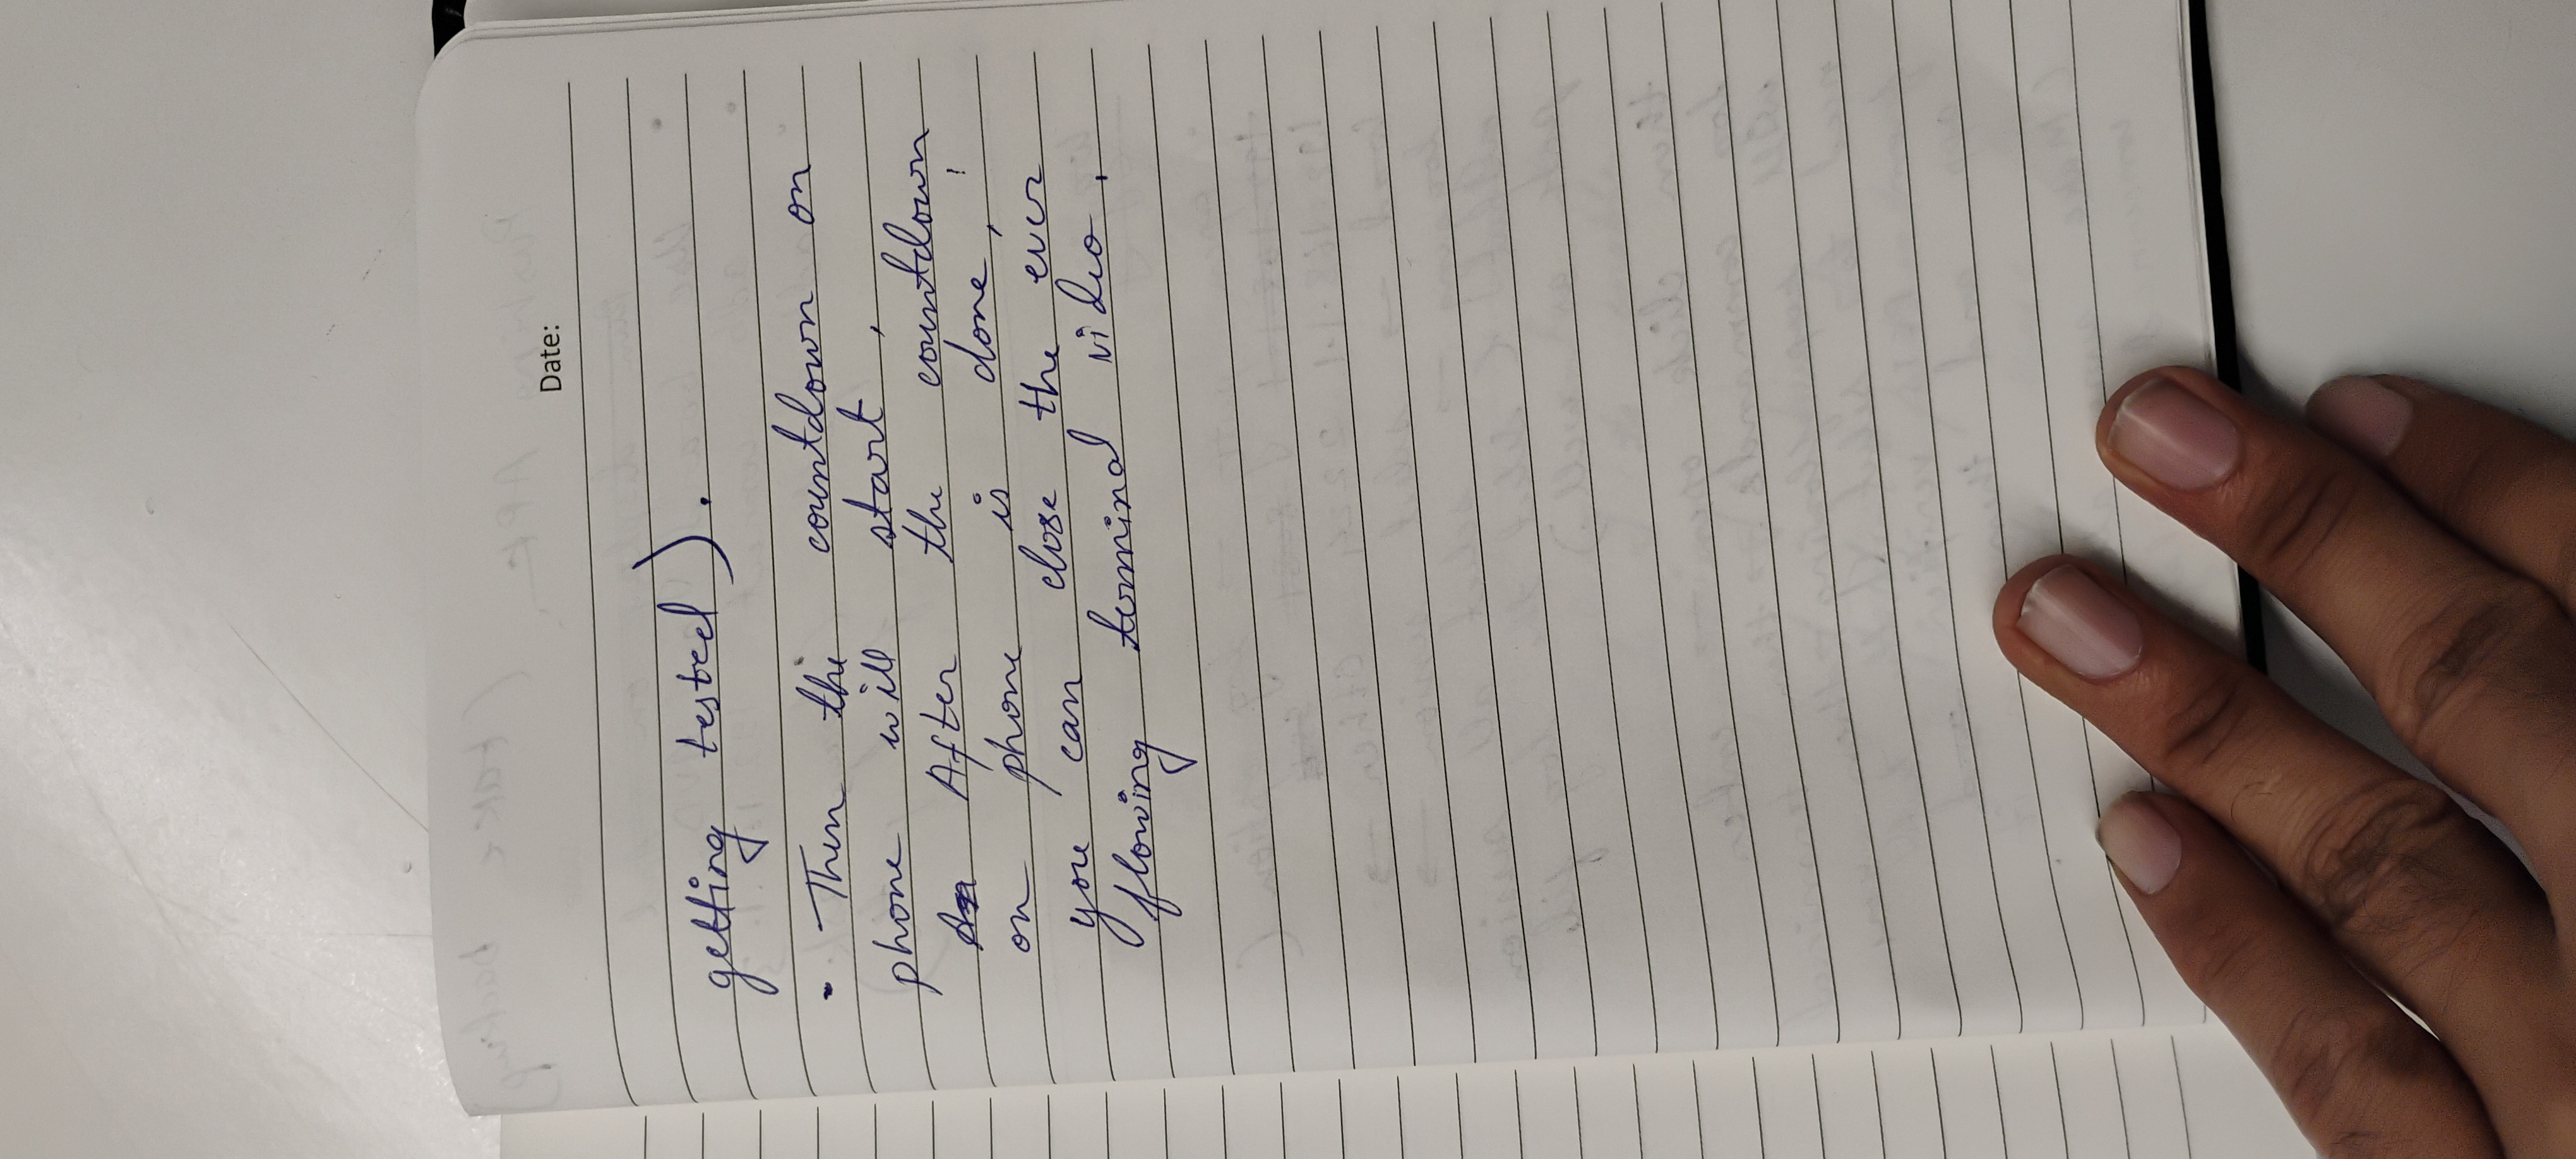 Date:
getting tested).
• Then the countdown on
phone will start,
After the countdown
on phone is done,
you can close the ever
flowing terminal video.